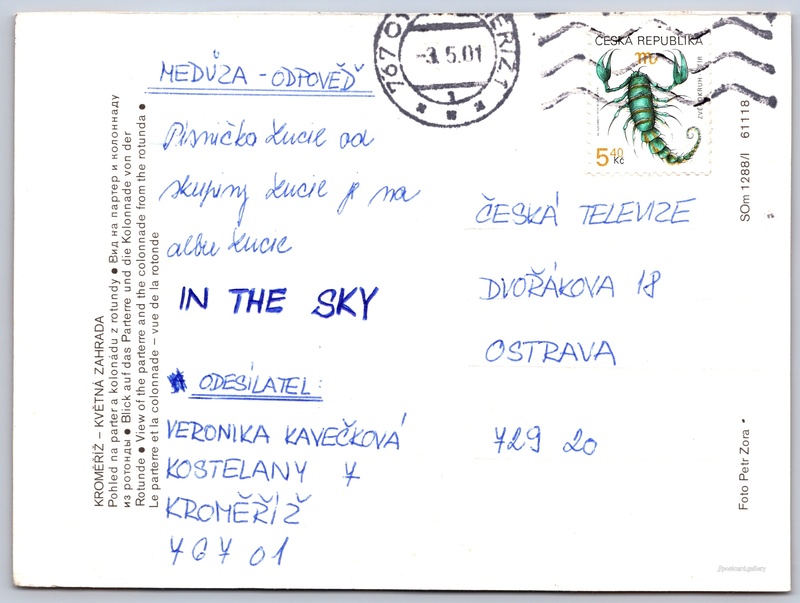 MEDŮZA - ODPOVĚĎ
Písnička Lucie od
skupiny Lucie je na
albu Lucie
IN THE SKY
ODESÍLATEL:
VERONIKA KAVEČKOVÁ
KOSTELANY 7
KROMĚŘÍŽ
767 01
ČESKÁ TELEVIZE
DVOŘÁKOVA 18
OSTRAVA
729 20
ČESKÁ REPUBLIKA
5.40 Kč
-3.5.01
1
KROMĚŘÍŽ – KVĚTNÁ ZAHRADA
Pohled na parter a kolonádu z rotundy ● Вид на партер и колоннаду
из ротонды ● Blick auf das Parterre und die Kolonnade von der
Rotunde ● View of the parterre and the colonnade from the rotunda ●
Le parterre et la colonnade – vue de la rotonde
SOm 1288/I 61118
Foto Petr Zora
//postcard.gallery